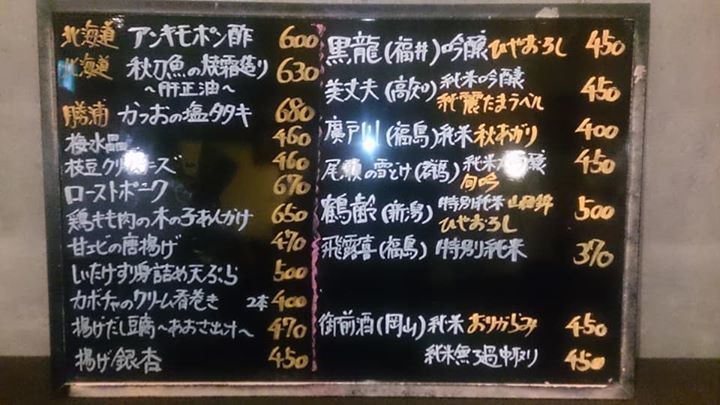 北海道 アンキモポン酢 600
北海道 秋刀魚の焼霜造り 630
～肝正油～
勝浦 かつおの塩タタキ 680
梅水晶 460
枝豆クリームチーズ 460
ローストポーク 670
鶏もも肉の木の子あんかけ 650
甘エビの唐揚げ 470
いたけすり身詰め天ぷら 500
カボチャのクリーム春巻き 2本 400
揚げだし豆腐～あおさ出汁～ 470
揚げ銀杏 450
黒龍(福井)吟醸ひやおろし 450
美丈夫(高知)純米吟醸 450
純麗たまラベル
廣戸川(福島)純米秋あがり 400
尾瀬の雪どけ(群馬)純米大吟醸 450
旬吟
鶴齢(新潟)特別純米山田錦 500
ひやおろし
飛露喜(福島)特別純米 370
御前酒(岡山)純米おりがらみ 450
純米無ろ過中取り 450